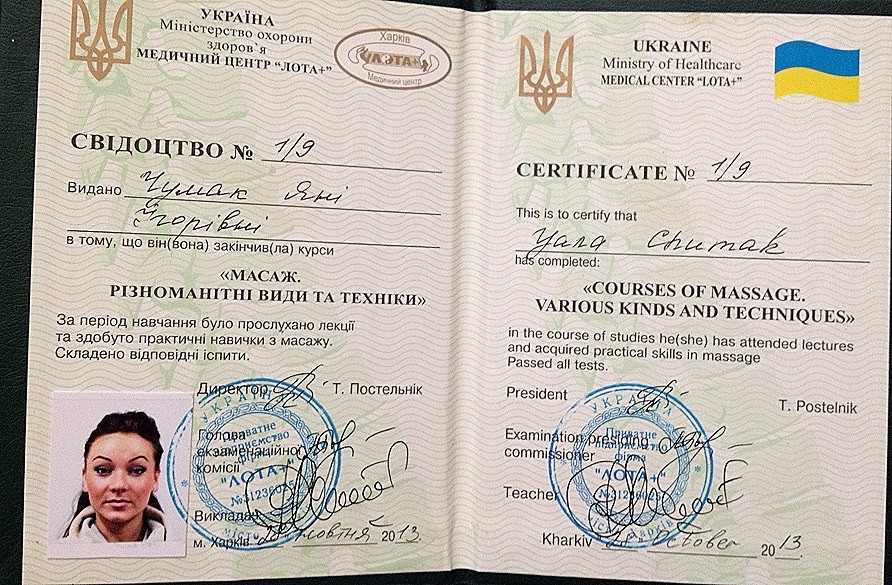 УКРАЇНА
Міністерство охорони
здоров`я
МЕДИЧНИЙ ЦЕНТР “ЛОТА+”
Харків
ЛОТА+
Медичний центр
СВІДОЦТВО № 1/9
Видано Чумак Яні
Ігорівні
в тому, що він(вона) закінчив(ла) курси
«МАСАЖ.
РІЗНОМАНІТНІ ВИДИ ТА ТЕХНІКИ»
За період навчання було прослухано лекції
та здобуто практичні навички з масажу.
Складено відповідні іспити.
Директор Т. Постельник
Голова
екзаменаційної
комісії
Викладач
м. Харків жовтня 2013
УКРАЇНА
Приватне
підприємство
фірма
"ЛОТА+"
UKRAINE
Ministry of Healthcare
MEDICAL CENTER “LOTA+”
CERTIFICATE № 1/9
This is to certify that
Yana Chumak
has completed:
«COURSES OF MASSAGE.
VARIOUS KINDS AND TECHNIQUES»
in the course of studies he(she) has attended lectures
and acquired practical skills in massage
Passed all tests.
President T. Postelnik
Examination presiding
commissioner
Teacher
Kharkiv October 2013
УКРАЇНА
Приватне
підприємство
фірма
"ЛОТА+"